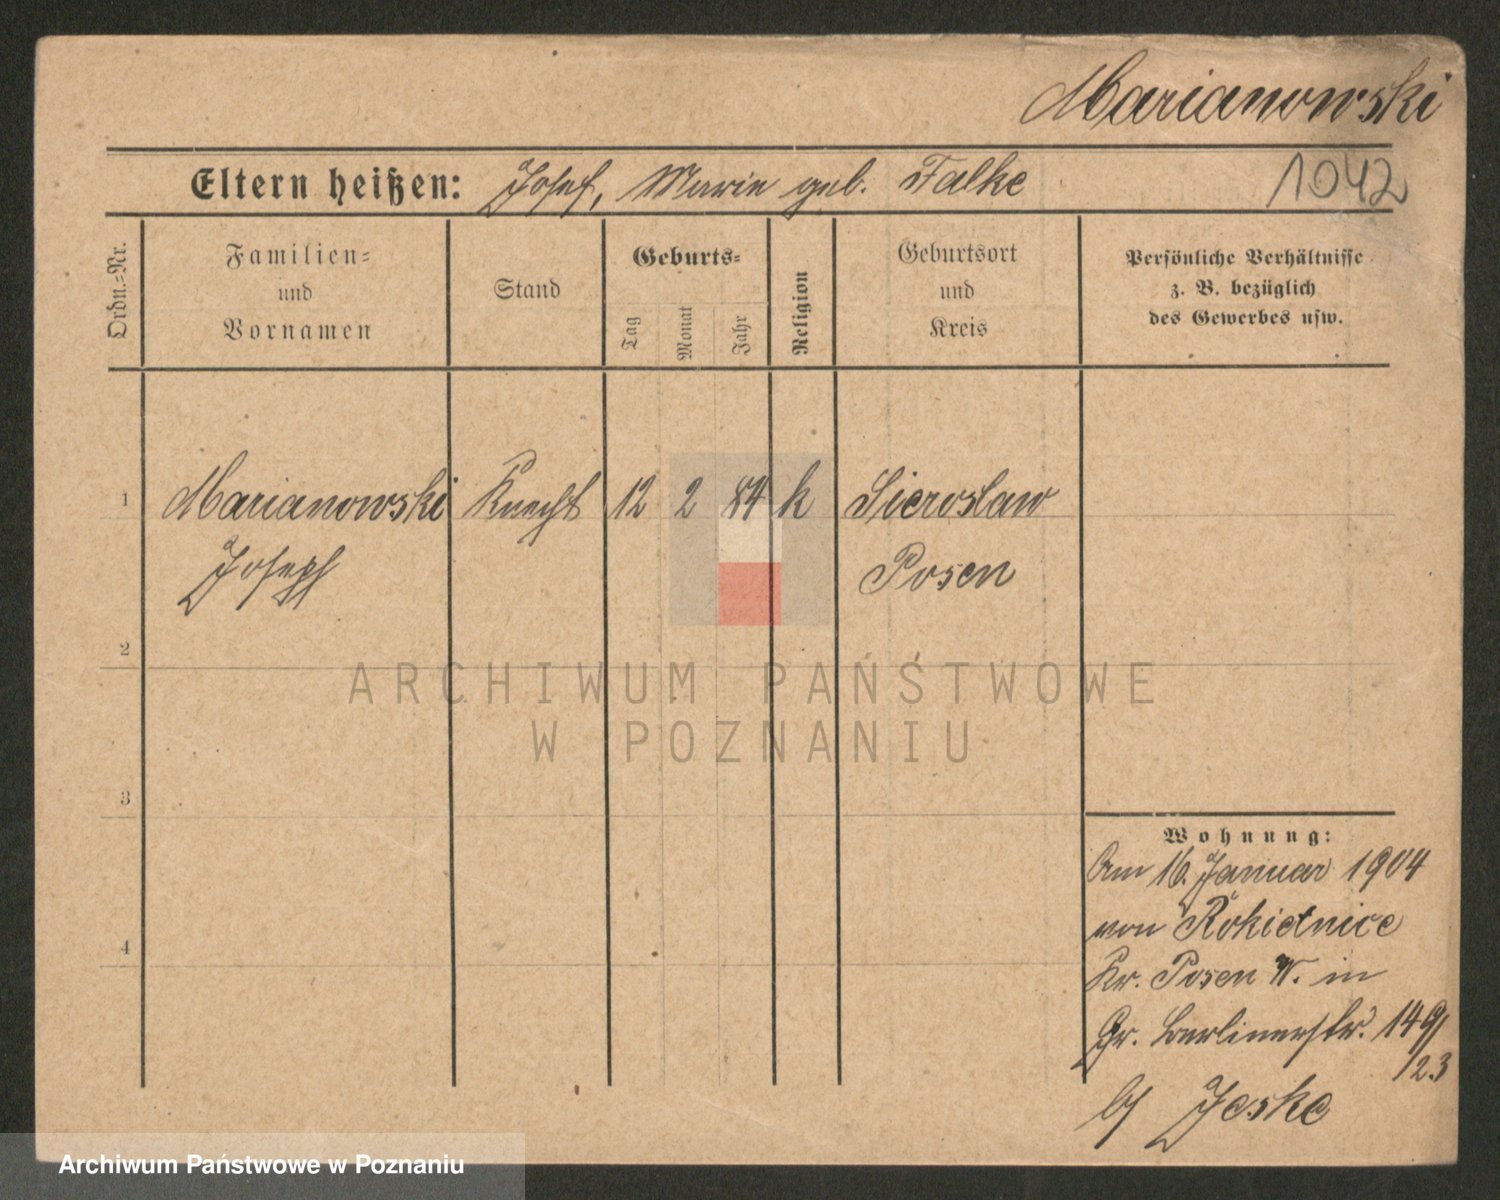 Marianowski
1042
Eltern heißen: Josef, Marie geb. Falke
Ordn.=Nr.
Familien=
und
Vornamen
Stand
Geburts=
Tag
Monat
Jahr
Religion
Geburtsort
und
Kreis
Persönliche Verhältnisse
z. B. bezüglich
des Gewerbes usw.
1 Marianowski Knecht 12 2 84 k Sieroslaw
Joseph Posen
2
3
4
Wohnung:
Am 16. Januar 1904
von Rokietnice
Kr. Posen W. in
Gr. Berlinerstr. 149/
/23
b/ Jeske
ARCHIWUM PAŃSTWOWE
W POZNANIU
Archiwum Państwowe w Poznaniu